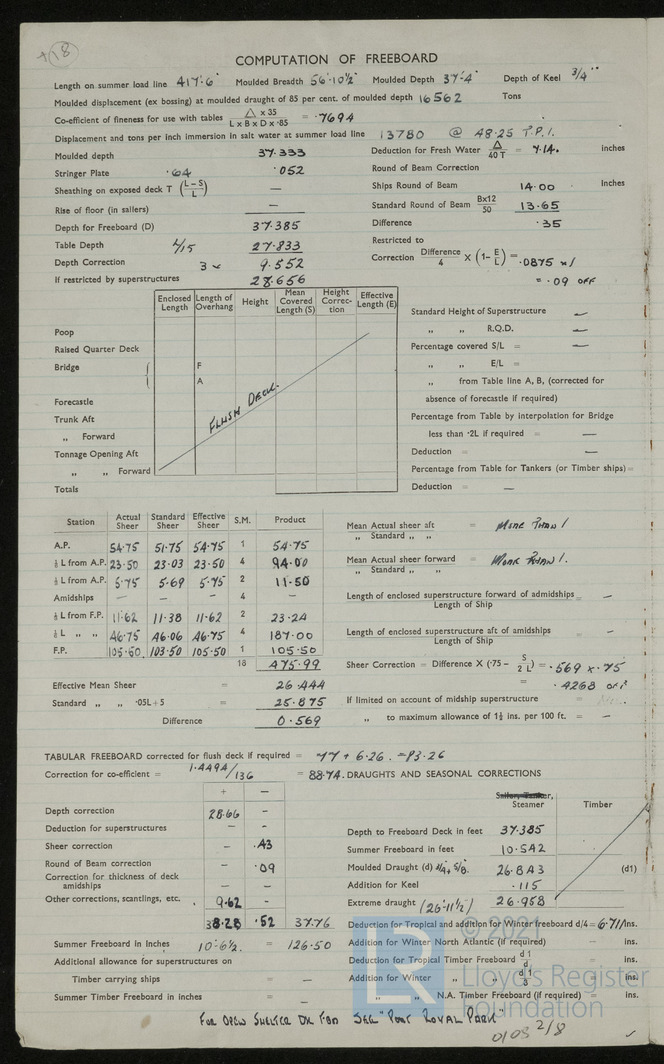 +18
COMPUTATION OF FREEBOARD
Length on summer load line 417'-6" Moulded Breadth 56'-10½" Moulded Depth 37'-4" Depth of Keel 3/4"
Moulded displacement (ex bossing) at moulded draught of 85 per cent. of moulded depth 16562 Tons
Co-efficient of fineness for use with tables △ x 35 / L x B x D x ·85 = ·7694
Displacement and tons per inch immersion in salt water at summer load line 13780 @ 48·25 T.P.I.
Moulded depth 37·333 Deduction for Fresh Water △/40T = 7·14 inches
Stringer Plate ·64 ·052 Round of Beam Correction
Sheathing on exposed deck T (L−S/L) — Ships Round of Beam 14·00 Inches
Rise of floor (in sailers) — Standard Round of Beam Bx12/50 13·65
Depth for Freeboard (D) 37·385 Difference ·35
Table Depth L/15 27·833 Restricted to
Depth Correction 3 × 9·552 Correction Difference/4 X (1− E/L) = ·0875 x 1
If restricted by superstructures 28·656 = ·09 OFF
Enclosed Length Length of Overhang Height Mean Covered Length (S) Height Correc-tion Effective Length (E)
Standard Height of Superstructure —
Poop „ „ R.Q.D. —
Raised Quarter Deck Percentage covered S/L = —
Bridge F „ „ E/L = —
A „ from Table line A, B, (corrected for
Forecastle absence of forecastle if required)
FLUSH DECK.
Trunk Aft Percentage from Table by interpolation for Bridge
„ Forward less than ·2L if required = —
Tonnage Opening Aft Deduction = —
„ „ Forward Percentage from Table for Tankers (or Timber ships) =
Totals Deduction = —
Station Actual Sheer Standard Sheer Effective Sheer S.M. Product
Mean Actual sheer aft / „ Standard „ „ = MORE THAN 1
A.P. 54·75 51·75 54·75 1 54·75
⅙ L from A.P. 23·50 23·03 23·50 4 94·00 Mean Actual sheer forward / „ Standard „ „ = MORE THAN 1.
⅓ L from A.P. 5·75 5·69 5·75 2 11·50
Amidships — — — 4 — Length of enclosed superstructure forward of admidships / Length of Ship = —
⅓ L from F.P. 11·62 11·38 11·62 2 23·24
⅙ L „ „ 46·75 46·06 46·75 4 187·00 Length of enclosed superstructure aft of amidships / Length of Ship = —
F.P. 105·50 103·50 105·50 1 105·50
18 475·99 Sheer Correction = Difference X (·75 − S/2L) = ·569 x ·75
Effective Mean Sheer = 26·444 = ·4268 OFF
Standard „ „ ·05L+5 = 25·875 If limited on account of midship superstructure =
Difference 0·569 „ to maximum allowance of 1½ ins. per 100 ft. = —
TABULAR FREEBOARD corrected for flush deck if required = 77 + 6·26. = 83·26
Correction for co-efficient = 1·4494/1·36 = 88·74. DRAUGHTS AND SEASONAL CORRECTIONS
+ − Sailer, Tanker, Steamer Timber
Depth correction 28·66
Deduction for superstructures — — Depth to Freeboard Deck in feet 37·385
Sheer correction — ·43 Summer Freeboard in feet 10·542
Round of Beam correction — ·09 Moulded Draught (d) 26·843 (d1)
Correction for thickness of deck amidships — — Addition for Keel ·115
Other corrections, scantlings, etc. 9·62 Extreme draught (26'-11½") 26·958
38·28 ·52 37·76 Deduction for Tropical and addition for Winter freeboard d/4 = 6·71 ins.
Summer Freeboard in Inches 10'-6½" = 126·50 Addition for Winter North Atlantic (if required) = ins.
Additional allowance for superstructures on Deduction for Tropical Timber Freeboard d1/4 = ins.
Timber carrying ships = — Addition for Winter „ „ d1/3 = ins.
Summer Timber Freeboard in inches = — „ „ N.A. Timber Freeboard (if required) = ins.
FOR OPEN SHELTER DK FBD SEE "PORT ROYAL PARK"
© 2021
LR
Lloyd's Register
Foundation